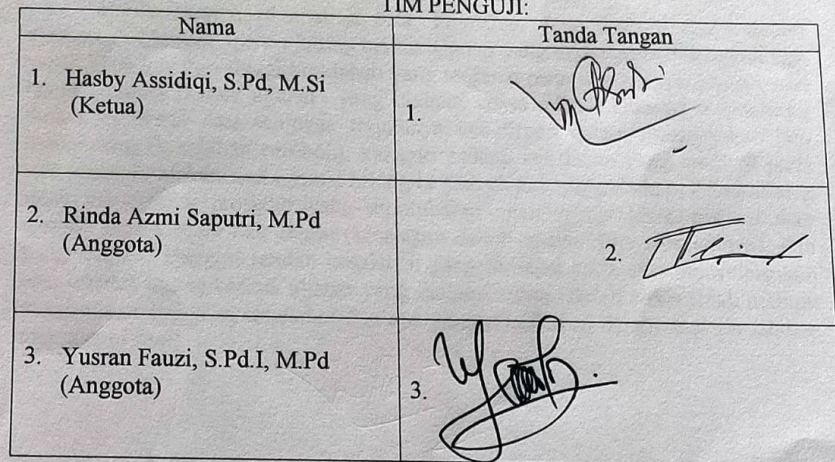 TIM PENGUJI:
Nama
Tanda Tangan
1. Hasby Assidiqi, S.Pd, M.Si
(Ketua)
1.
2. Rinda Azmi Saputri, M.Pd
(Anggota)
2.
3. Yusran Fauzi, S.Pd.I, M.Pd
(Anggota)
3.